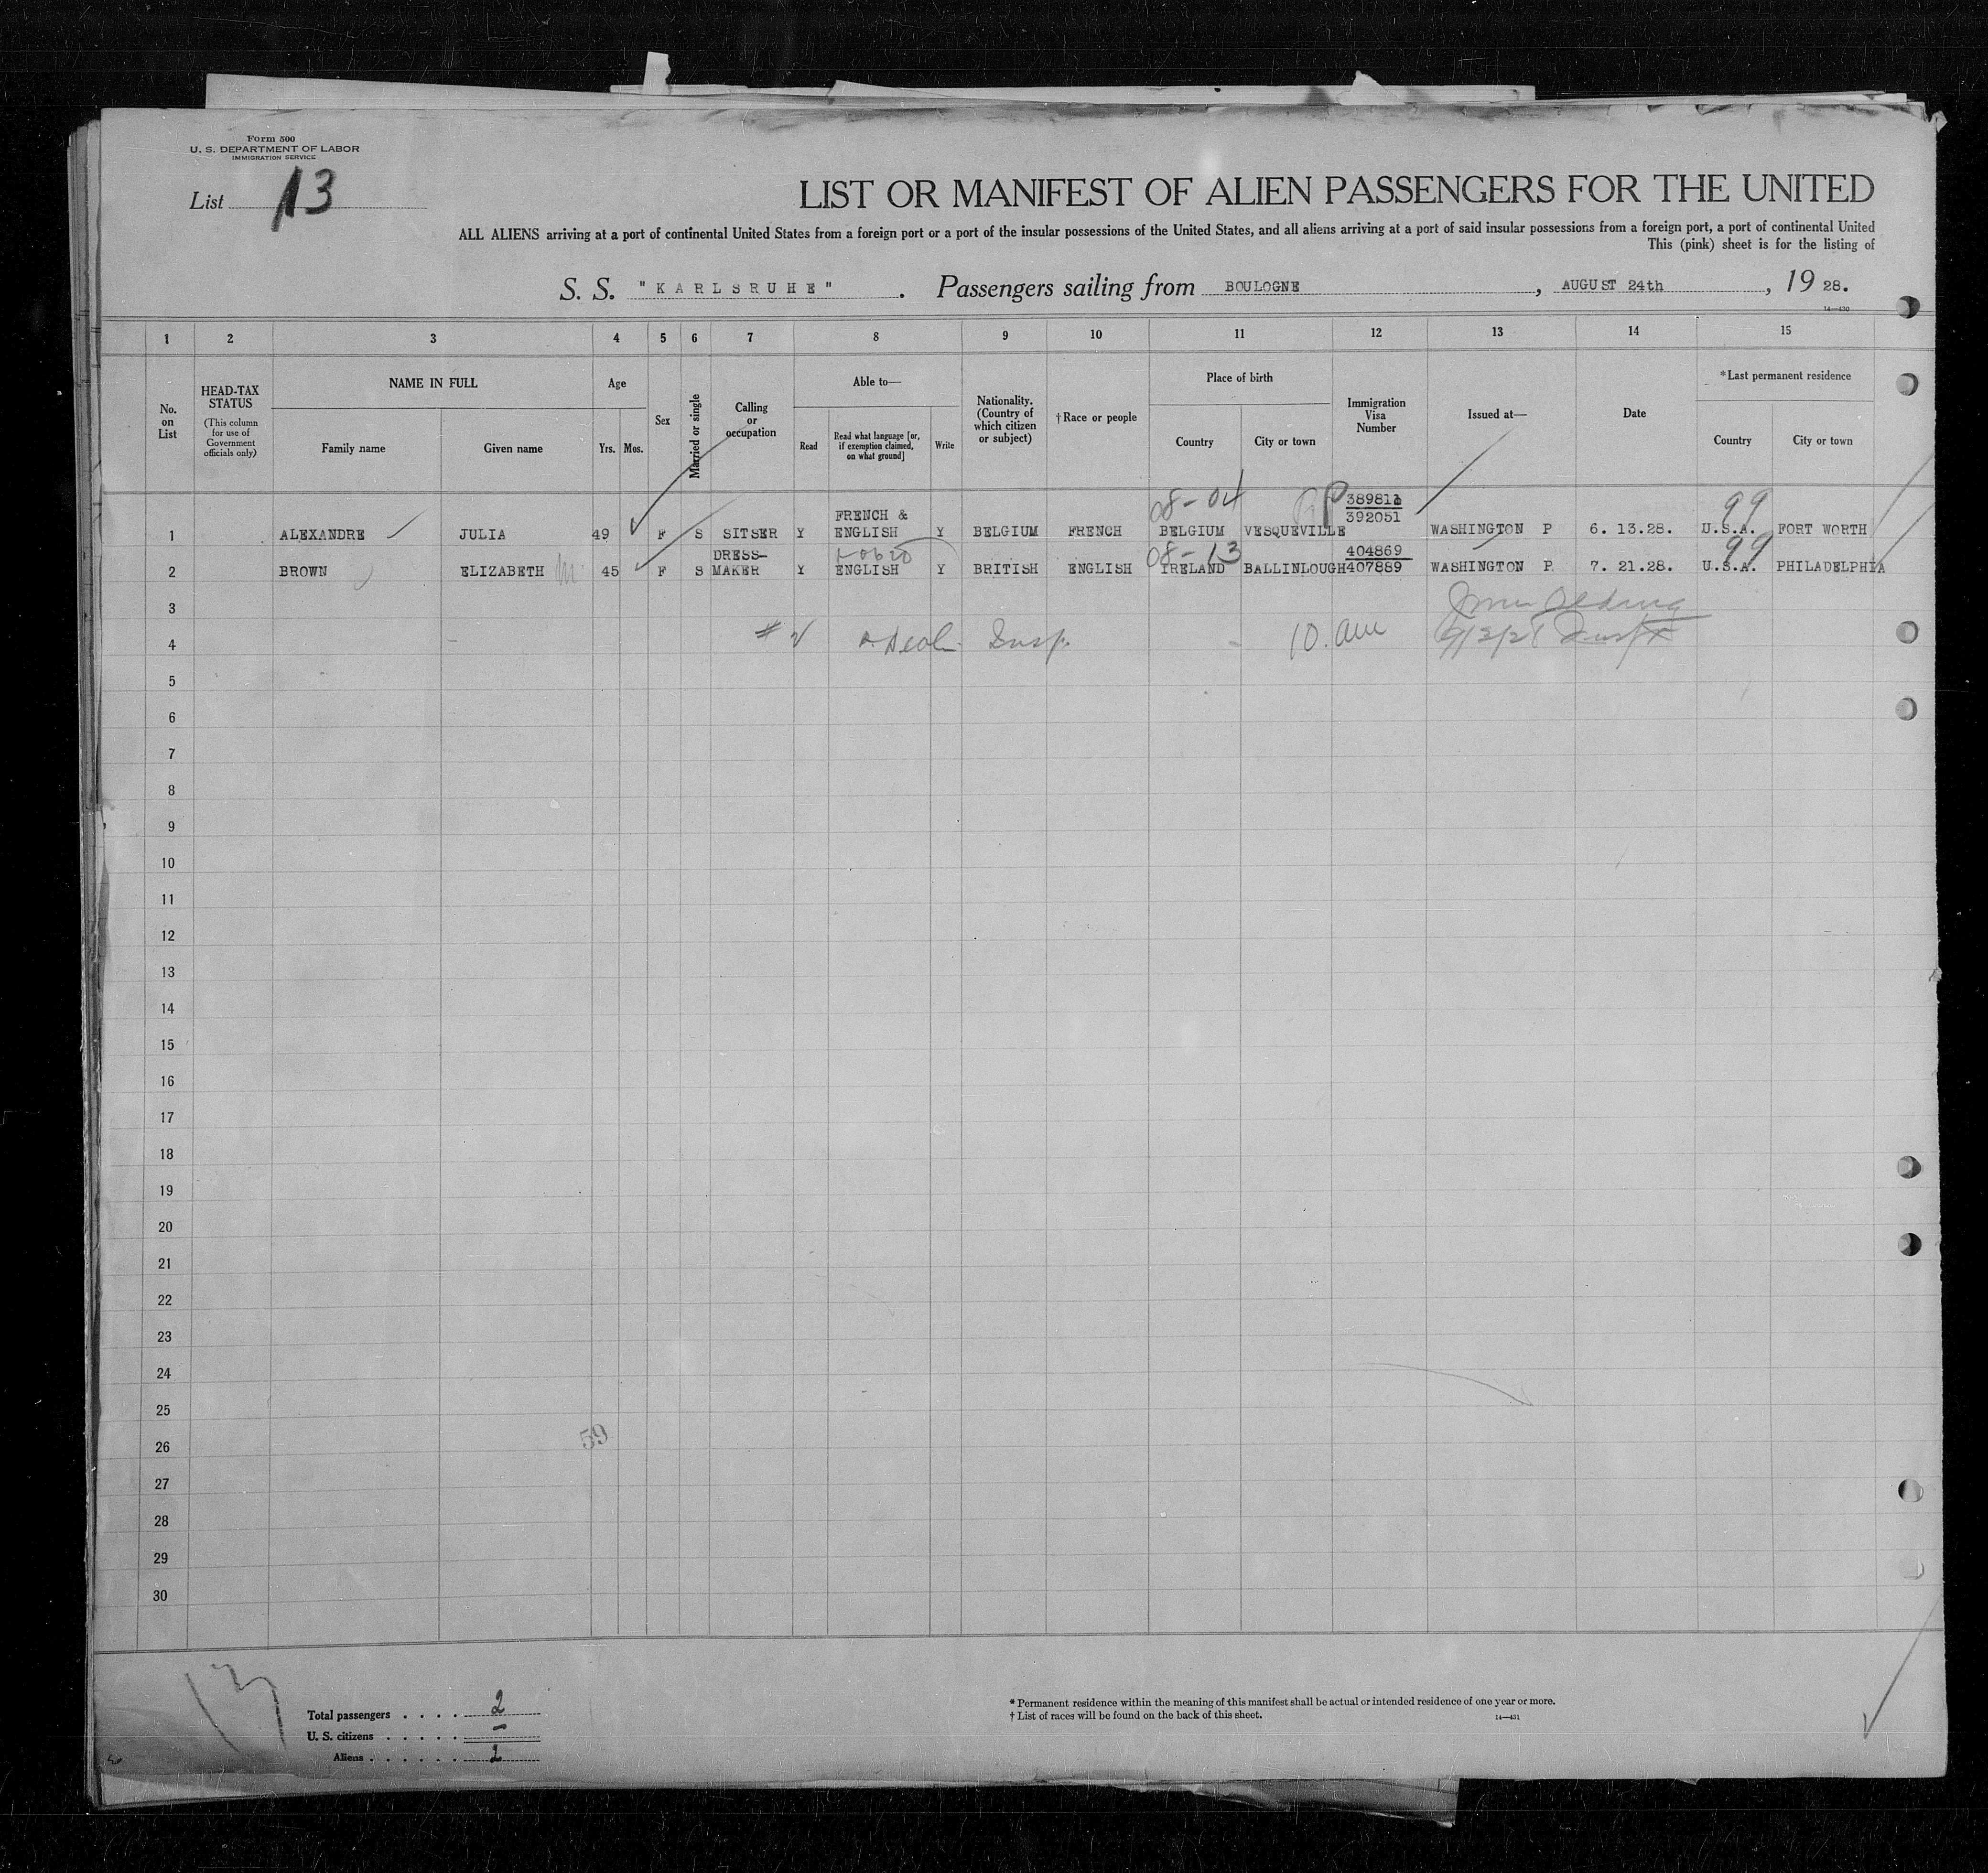 Form 500
U. S. DEPARTMENT OF LABOR
IMMIGRATION SERVICE
List 13
LIST OR MANIFEST OF ALIEN PASSENGERS FOR THE UNITED
ALL ALIENS arriving at a port of continental United States from a foreign port or a port of the insular possessions of the United States, and all aliens arriving at a port of said insular possessions from a foreign port, a port of continental United
This (pink) sheet is for the listing of
S. S. "KARLSRUHE". Passengers sailing from BOULOGNE, AUGUST 24th, 1928.
14—430
1 2 3 4 5 6 7 8 9 10 11 12 13 14 15
No. on List
HEAD-TAX STATUS
(This column for use of Government officials only)
NAME IN FULL
Family name Given name
Age
Yrs. Mos.
Sex
Married or single
Calling or occupation
Able to—
Read
Read what language [or, if exemption claimed, on what ground]
Write
Nationality. (Country of which citizen or subject)
†Race or people
Place of birth
Country City or town
Immigration Visa Number
Issued at—
Date
*Last permanent residence
Country City or town
08-04 99
1 ALEXANDRE JULIA 49 F S SITSER Y FRENCH & ENGLISH Y BELGIUM FRENCH BELGIUM VESQUEVILLE 392051 WASHINGTON P 6. 13.28. U.S.A. FORT WORTH
08-13 99
2 BROWN ELIZABETH 45 F S DRESS-MAKER Y ENGLISH Y BRITISH ENGLISH IRELAND BALLINLOUGH 404869 407889 WASHINGTON P 7. 21.28. U.S.A. PHILADELPHIA
3
4 10. am
5
6
7
8
9
10
11
12
13
14
15
16
17
18
19
20
21
22
23
24
25
26
59
27
28
29
30
13
Total passengers . . . . 2
U. S. citizens . . . . . –
Aliens . . . . . . 2
* Permanent residence within the meaning of this manifest shall be actual or intended residence of one year or more.
† List of races will be found on the back of this sheet.
14—431